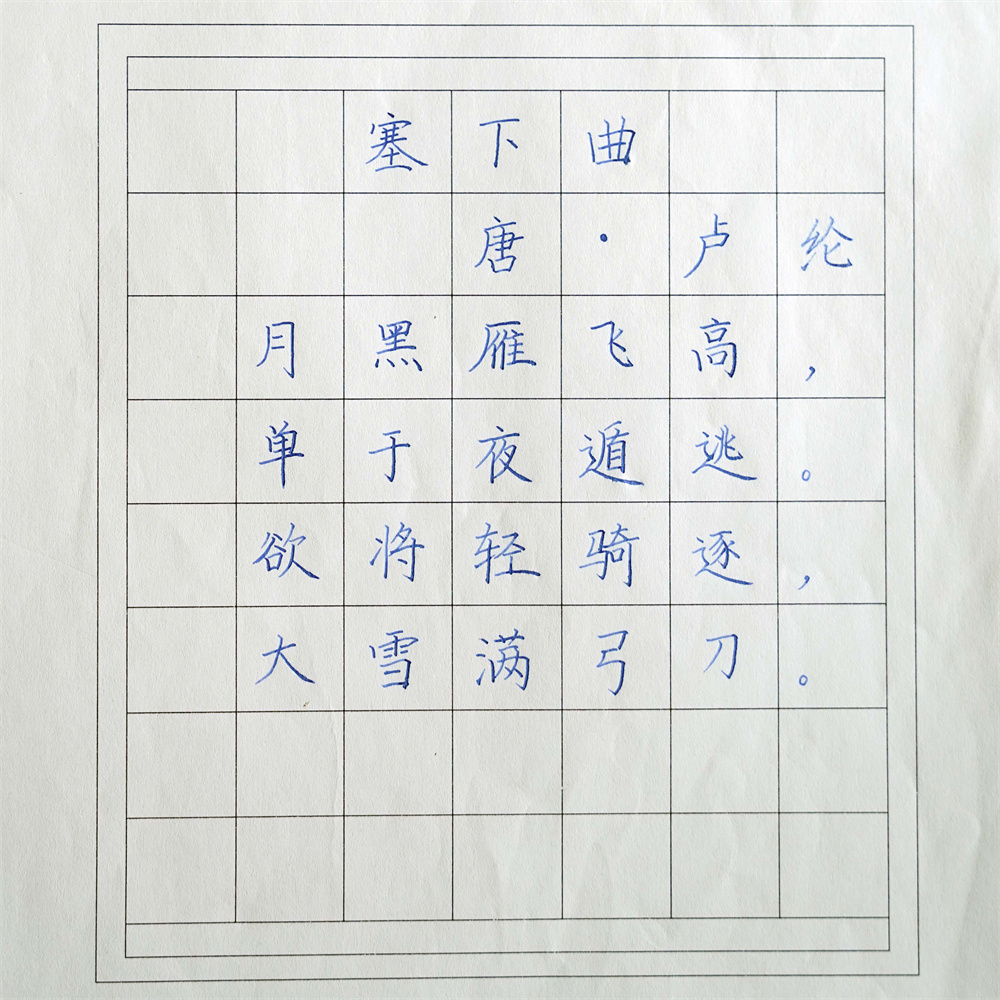 塞下曲
唐·卢纶
月黑雁飞高，
单于夜遁逃。
欲将轻骑逐，
大雪满弓刀。